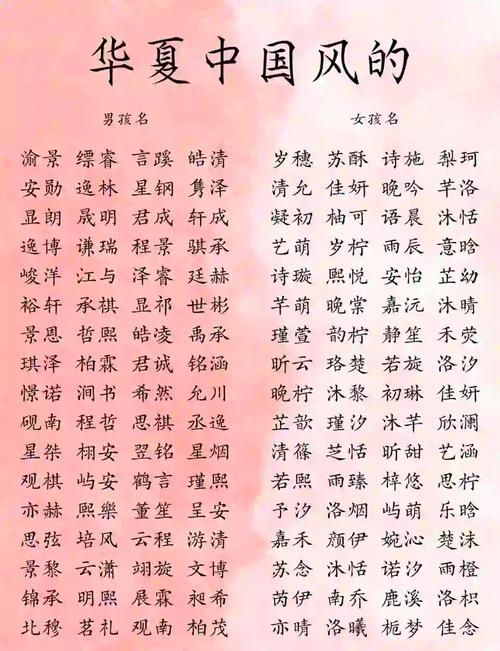 华夏中国风的
男孩名 女孩名
渝景 缥睿 言蹊 皓清 岁穗 苏酥 诗施 梨珂
安勋 逸林 星钢 隽泽 清允 佳妍 晚吟 芊洛
显朗 晟明 君成 轩成 凝初 柚可 语晨 沐恬
逸博 谦瑞 程景 骐承 艺萌 岁柠 雨辰 意晗
峻洋 江与 泽睿 廷赫 诗璇 熙悦 安怡 芷幼
裕轩 承祺 显祁 世彬 芊萌 晚棠 嘉沅 沐晴
景恩 哲熙 皓凌 禹承 瑾萱 韵柠 静笙 禾荧
琪泽 柏霖 君诚 铭涵 昕云 珞楚 若旋 洛汐
憬诺 涧书 希然 允川 晚柠 沐黎 初琳 佳妍
砚南 程哲 思祺 丞逸 芷歆 瑾汐 沐芊 欣澜
星桀 栩安 翌铭 星烟 清篠 芝恬 昕甜 艺涵
观棋 屿安 鹤言 瑾熙 若熙 雨臻 梓悠 思柠
亦赫 熙樂 董笙 呈安 予汐 洛烟 屿萌 乐晗
思弦 培风 云程 游清 嘉禾 颜伊 婉沁 楚沫
景黎 云潇 翊旋 文博 苏念 沐恬 诺汐 雨橙
锦承 明熙 展霖 昶希 芮伊 南乔 鹿溪 洛枳
北穆 茗礼 观南 柏茂 亦晴 洛曦 栀梦 佳念